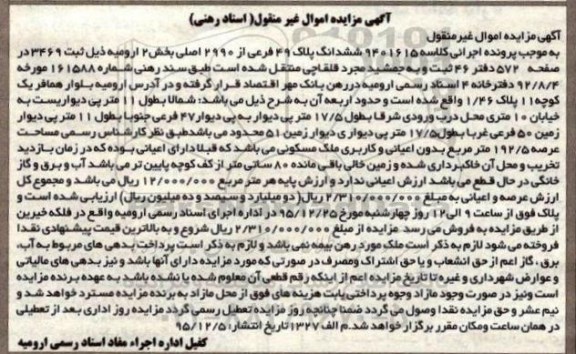 آگهی مزایده اموال غیر منقول( اسناد رهنی)
آگهی مزایده اموال غیرمنقول
به موجب پرونده اجرائی کلاسه ۹۴۰۱۶۱۵ ششدانگ پلاک ۴۹ فرعی از ۲۹۹۰ اصلی بخش۲ ارومیه ذیل ثبت ۳۴۶۹ در
صفحه ۵۷۲ دفتر ۴۶ ثبت و به جمشید مجرد قلقاچی منتقل شده است طبق سند رهنی شماره ۱۶۱۵۸۸ مورخه
۹۲/۸/۴ دفترخانه ۴ اسناد رسمی ارومیه در رهن بانک مهر اقتصاد قرار گرفته و در آدرس ارومیه بلوار همافر یک
کوچه ۱۱ پلاک ۱/۴۶ واقع شده است و حدود اربعه آن به شرح ذیل می باشد: شمالا بطول ۱۱ متر پی دیواریست به
خیابان ۱۰ متری محل درب ورودی شرقا بطول ۱۷/۵ متر پی دیوار به پی دیوار ۴۷ فرعی جنوبا بطول ۱۱ متر پی دیوار
زمین ۵۰ فرعی غربا بطول ۱۷/۵ متر پی دیواری دیوار زمین ۵۱ محدود می باشد طبق نظر کارشناس رسمی مساحت
عرصه ۱۹۲/۵ متر مربع بدون اعیانی و کاربری ملک مسکونی می باشد که قبلا دارای اعیانی بوده که در زمان بازدید
تخریب و محل آن خاکبرداری شده و زمین خالی باقی مانده ۸۰ سانی متر از کف کوچه پایین تر می باشد آب و برق و گاز
خانگی در حال قطع می باشد ارزش اعیانی ندارد و ارزش پایه هر متر مربع ۱۲/۰۰۰/۰۰۰ ریال می باشد و مجموع کل
ارزش عرصه و اعیانی به مبلغ ۲/۳۱۰/۰۰۰/۰۰۰ ریال( دو میلیارد و سیصد و ده میلیون ریال) ارزیابی شده است و
پلاک فوق از ساعت ۹ الی ۱۲ روز چهارشنبه مورخ ۹۵/۱۲/۲۵ در اداره اجرای اسناد رسمی ارومیه واقع در فلکه خیرین
از طریق مزایده به فروش می رسد. مزایده از مبلغ ۲/۳۱۰/۰۰۰/۰۰۰ ریال شروع و به بالاترین قیمت پیشنهادی نقدا
فروخته می شود لازم به ذکر است ملک مورد رهن بیمه نمی باشد و لازم به ذکر است پرداخت بدهی های مربوط به آب،
برق، گاز اعم از حق انشعاب و یا حق اشتراک و مصرف در صورتی که مورد مزایده دارای آنها باشد و نیز بدهی های مالیاتی
و عوارض شهرداری و غیره تا تاریخ مزایده اعم از اینکه رقم قطعی آن معلوم شده یا نشده باشد به عهده برنده مزایده
است ونیز در صورت وجود مازاد وجوه پرداختی بابت هزینه های فوق از محل مازاد به برنده مزایده مسترد خواهد شد و
نیم عشر و حق مزایده نقدا وصول می گردد ضمنا چنانچه روز مزایده تعطیل رسمی گردد مزایده روز اداری بعد از تعطیلی
در همان ساعت ومکان مقرر برگزار خواهد شد. م الف ۱۳۲۷ تاریخ انتشار: ۹۵/۱۲/۵
کفیل اداره اجراء مفاد اسناد رسمی ارومیه